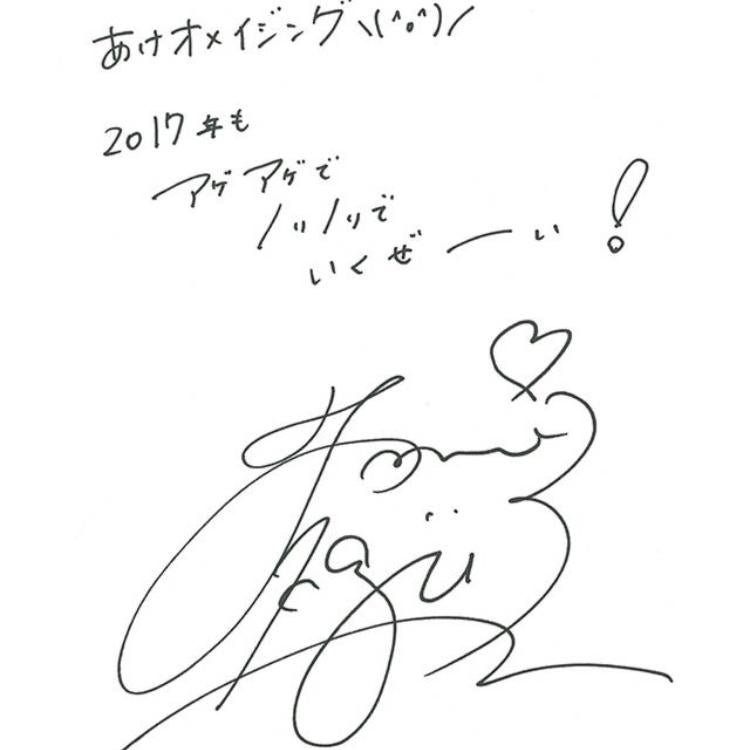 あけオメイジング\(^o^)/
2017年も
アゲアゲで
ノリノリで
いくぜーぃ!